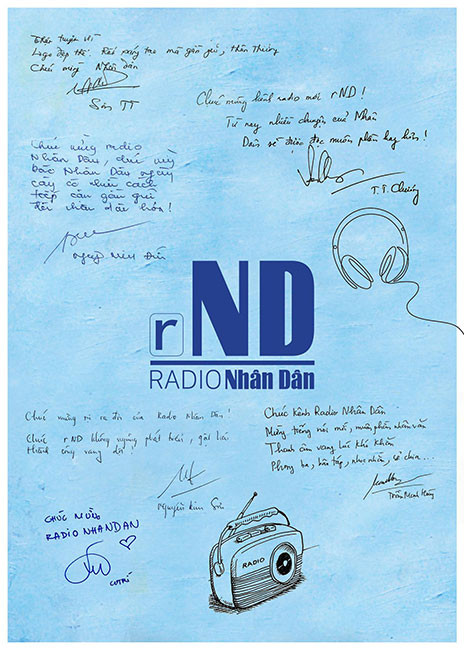 Logo đẹp thế! Rất xứng tạo mà gần gũi, thân thương
Chúc mừng Nhân Dân
Sơn TT
Chúc mừng kênh radio mới rND!
Từ nay nhiều chuyện của Nhân
Dân sẽ được đọc muôn phần hay hơn!
T.T. Chương
Chúc mừng radio
Nhân Dân, chúc
Báo Nhân Dân ngày
càng có nhiều cách
tiếp cận gần gũi
rND
RADIO Nhân Dân
Chúc mừng sự ra đời của Radio Nhân Dân!
Chúc rND không ngừng phát triển, gặt hái
thành công vang dội!
Nguyễn Kim Sơn
Chúc kênh Radio Nhân Dân
Miếng tiếng nói mới, muôn phần nhân văn
Thanh âm vang lúc khó khăn
Phong ba, bão táp, nhọc nhằn, sẻ chia...
Trần Minh
CHÚC MỪNG
RADIO NHANDAN
RADIO